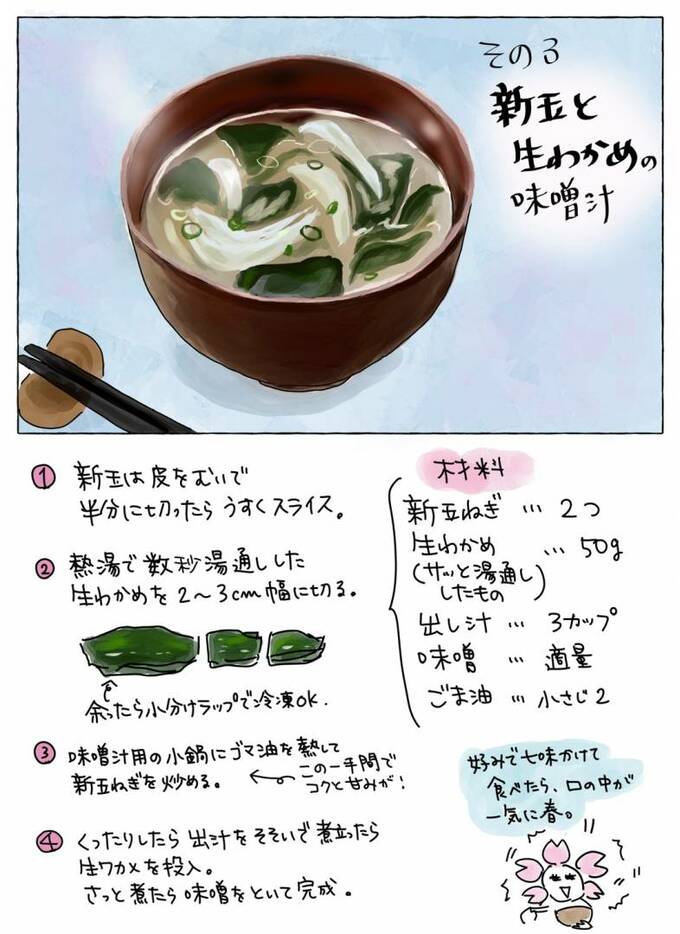 その3
新玉と
生わかめの
味噌汁
① 新玉は皮をむいで
半分に切ったらうすくスライス。
② 熱湯で数秒湯通しした
生わかめを2〜3cm幅に切る。
余ったら小分けラップで冷凍OK.
③ 味噌汁用の小鍋にゴマ油を熱して
新玉ねぎを炒める。
この一手間で
コクと甘みが!
④ くったりしたら出汁をそそいで煮立ったら
生ワカメを投入。
さっと煮たら味噌をといて完成。
材料
新玉ねぎ … 2つ
生わかめ … 50g
(サッと湯通し
したもの)
出し汁 … 3カップ
味噌 … 適量
ごま油 … 小さじ2
好みで七味かけて
食べたら、口の中が
一気に春。